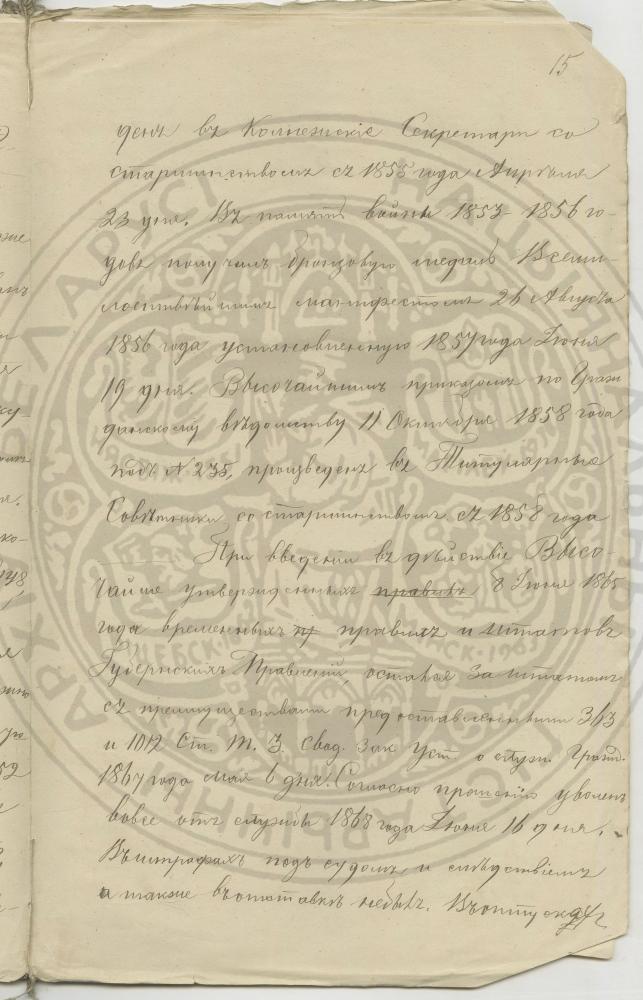 15
денъ въ Коллежскіе Секретари со
старшинствомъ съ 1855 года Апрѣля
23 дня. Въ память войны 1853-1856 го-
довъ получилъ бронзовую медаль Всеми-
лостивѣйшимъ манифестомъ 26 Августа
1856 года установленную 1857 года Іюня
19 дня. Высочайшимъ приказомъ по Граж
данскому вѣдомству 11 Октября 1858 года
подъ № 235, произведенъ въ Титулярные
Совѣтники со старшинствомъ съ 1858 года
При введеніи въ дѣйствіе Высо-
чайше утвержденныхъ правилъ 8 Іюня 1865
года временныхъ пр правилъ и штатовъ
Губернскихъ Правленій, остался за штатомъ
съ преимуществами предоставленными 363
и 1012 Ст. Т. 3. Свод. Зак Уст. о служ. Гражд.
1867 года Мая 6 дня. Согласно прошенію уволенъ
вовсе отъ службы 1868 года Іюня 16 дня.
Въ штрафахъ подъ судомъ и слѣдствіемъ
а также въ отставкѣ небылъ. Въ отпускахъ